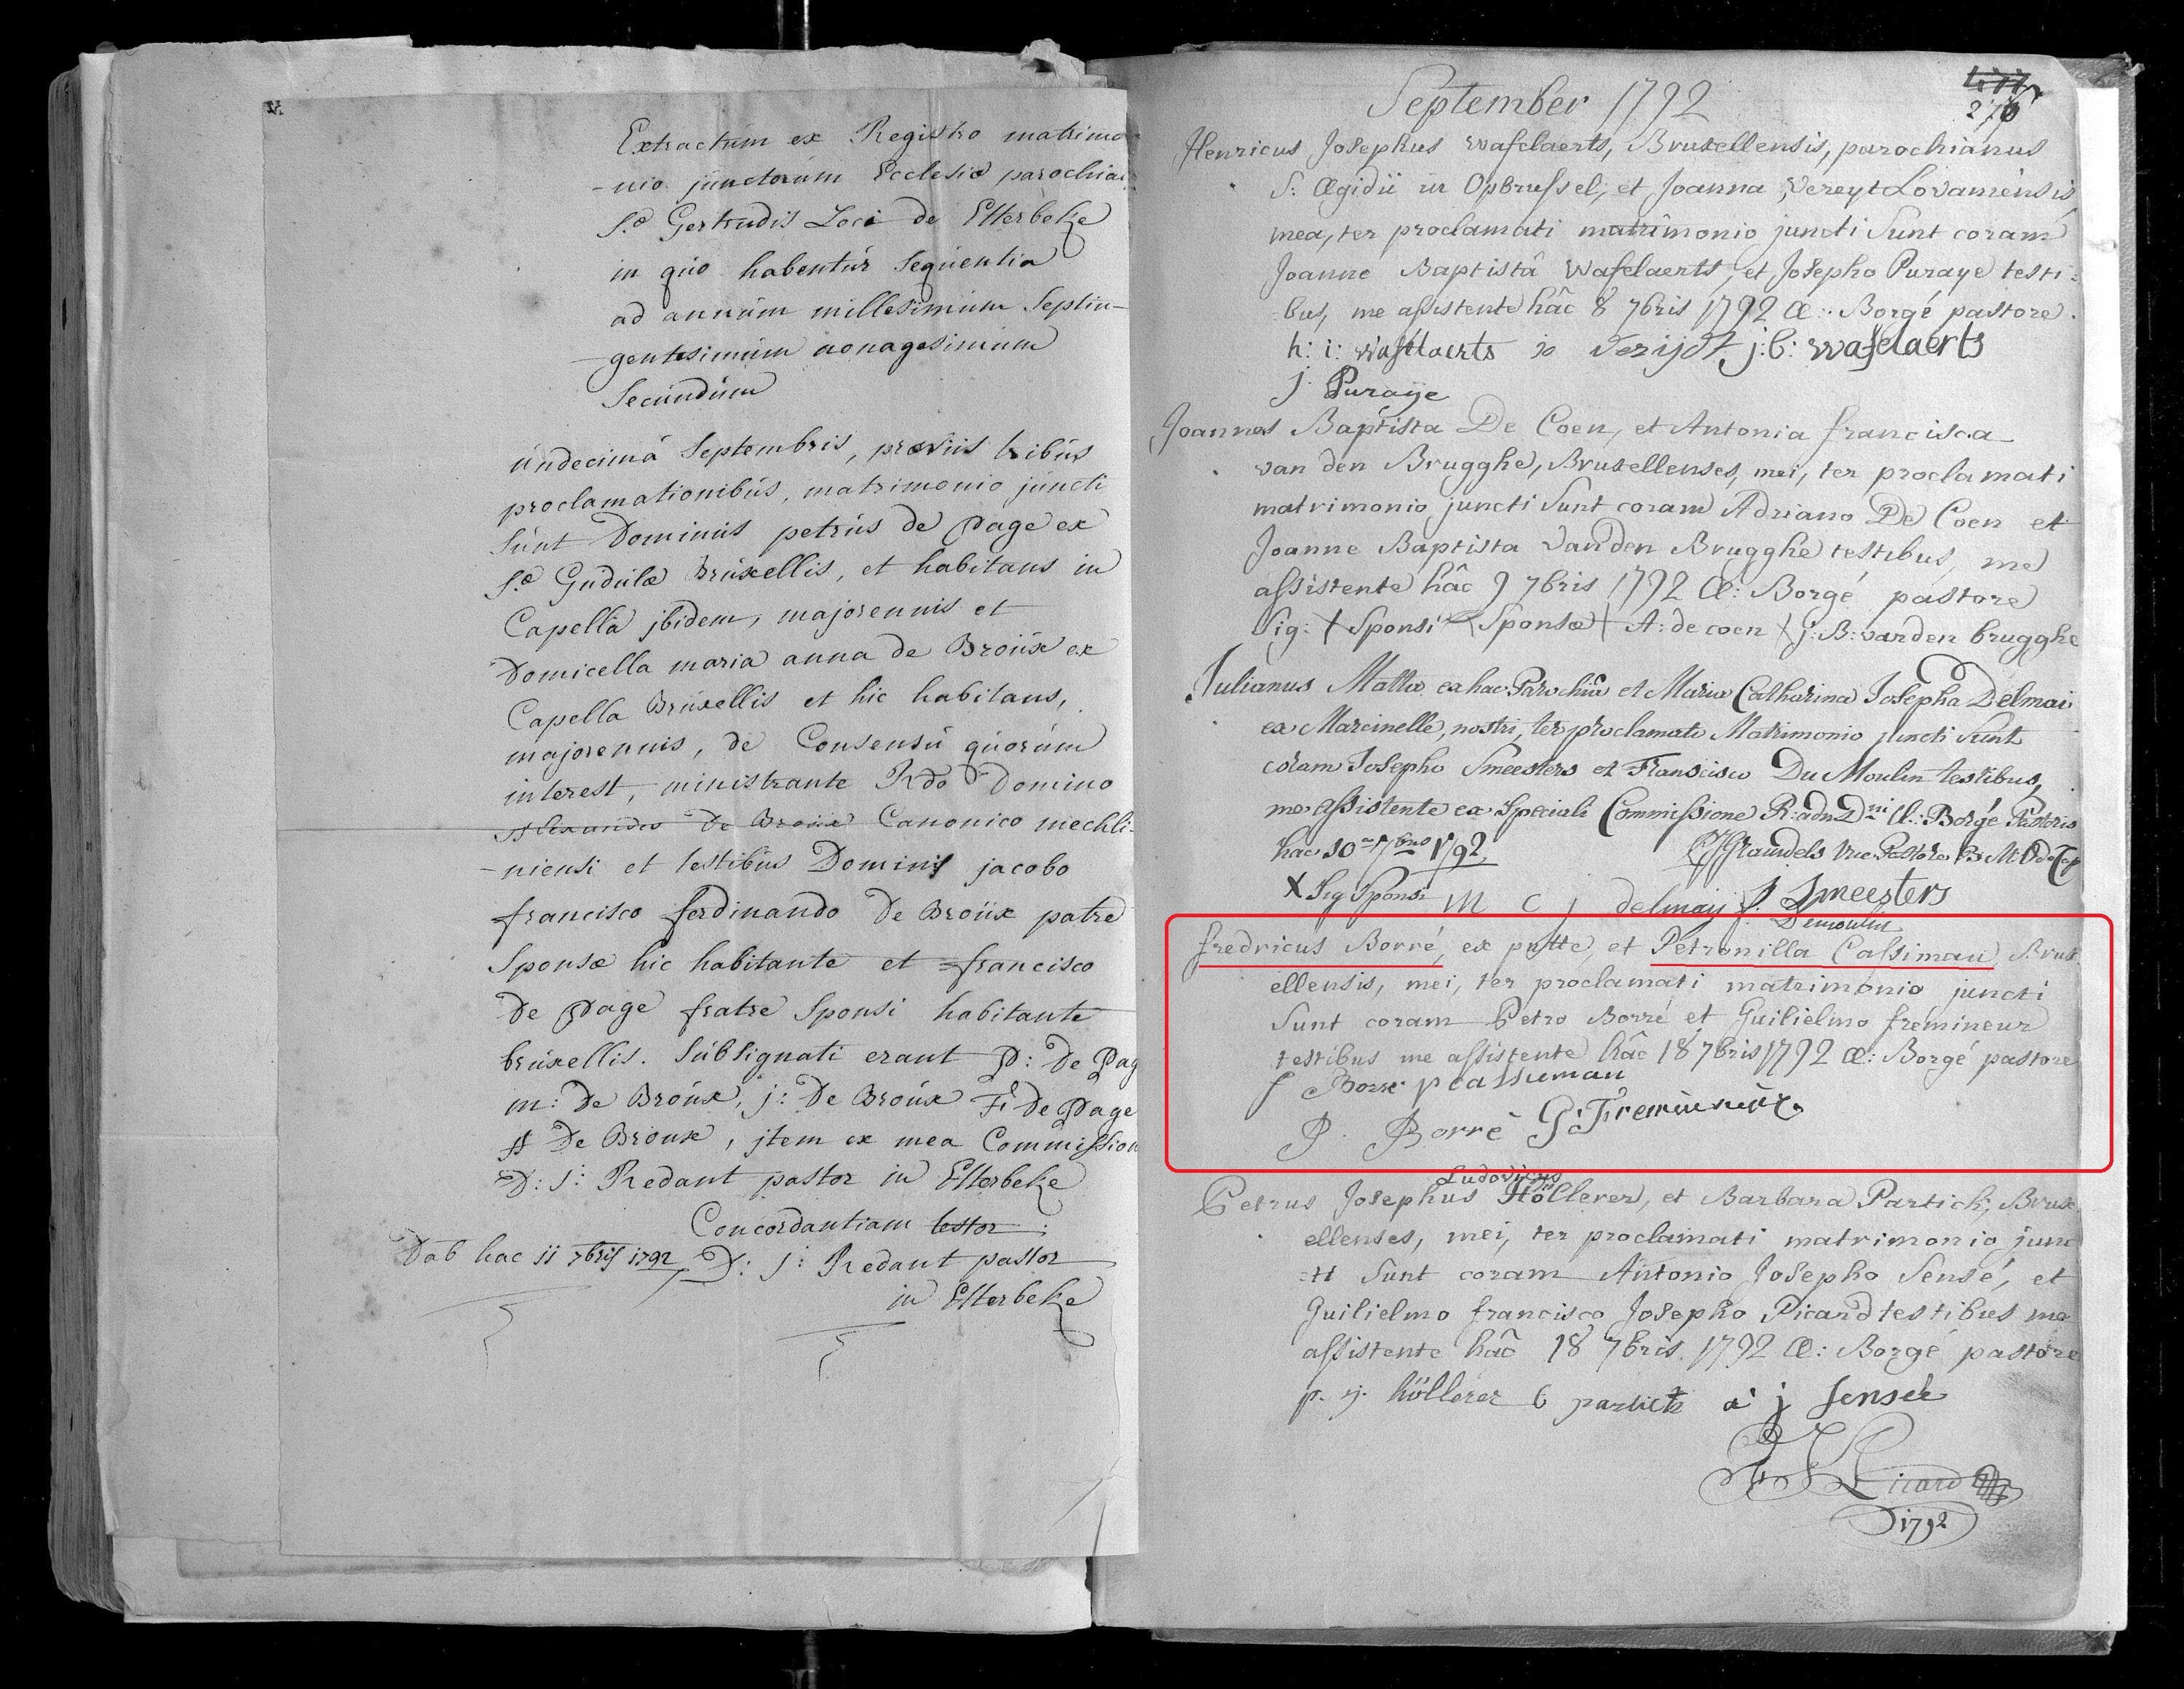 Extractum ex Registro matrimo
-nio junctorum Ecclesiæ parochial
S.æ Gertrudis Loci de Etterbeke
in quo habentur sequentia
ad annum millesimum septin-
gentesimum nonagesimum
secundum
undecimâ Septembris, præviis tribus
proclamationibus, matrimonio juncti
sunt Dominus petrus de Page ex
S.æ Gudulæ Bruxellis, et habitans in
Capella jbidem, majorennis et
Domicella maria anna de Broux ex
Capella Bruxellis et hic habitans,
majorennis, de Consensu quorum
interest, ministrante Rdo Domino
Alexandro De Broux Canonico mechli-
-niensi et testibus Dominis jacobo
francisco ferdinando De Broux patre
Sponsæ hic habitante et francisco
De Page fratre Sponsi habitante
bruxellis. Subsignati erant P: De Pag
m: De Broux, j: De Broux F: De Page
A De Broux, jtem ex mea Commission
D: J: Redant pastor in Etterbeke
Concordantiam testor:
Dab hac 11 7bris 1792 D: J: Redant pastor
in Etterbeke
276
September 1792
Henricus Josephus Wafelaerts, Bruxellensis, parochianus
S: Ægidii in Opbrussel, et Joanna Vereyt Lovaniensis
mea, ter proclamati matrimonio juncti sunt coram
Joanne Baptistâ Wafelaerts, et Josepho Puraye testi:
bus, me assistente hâc 8 7bris 1792 Æ: Borgé pastore.
h: i: Wafelaerts io Verijdt j: b: wafelaerts
j. Puraye
Joannes Baptista De Coen, et Antonia francisca
van den Brugghe, Bruxellenses, mei, ter proclamati
matrimonio juncti sunt coram Adriano De Coen et
Joanne Baptista Vanden Brugghe testibus, me
assistente hâc 9 7bris 1792 Æ: Borgé pastore
Sig: + Sponsi Sponsæ + A: de coen j: B: vanden brugghe
Julianus Matta ex hac Parochia et Maria Catharina Josepha Delmai
ex Marcinelle, nostri, ter proclamati Matrimonio juncti sunt
coram Josepho Smeesters et Francisco Du Moulin testibus,
me assistente ex Speciali Commissione R: adm D.ni Æ: Borgé Pastoris
hac 10 7bris 1792
X Sig Sponsi m c j delmaij J. Smeesters
Demoulin
fredricus Borré, ex putte, et Petronilla Cassiman, Brux
ellensis, mei, ter proclamati matrimonio juncti
Sunt coram Petro Borré et Guilielmo fremineur
testibus me assistente hâc 18 7bris 1792 Æ: Borgé pastore
f Borre p cassiman
P. Borré G: Fremineur
Ludovicus
Petrus Josephus Höllerer, et Barbara Partich, Brux
ellenses, mei, ter proclamati matrimonio junc
:ti sunt coram Antonio Josepho Sensé, et
Guilielmo francisco Josepho Picard testibus me
assistente hâc 18 7bris 1792 Æ: Borgé pastore
p. j. höllerer b partich a j sensée
Picard
1792